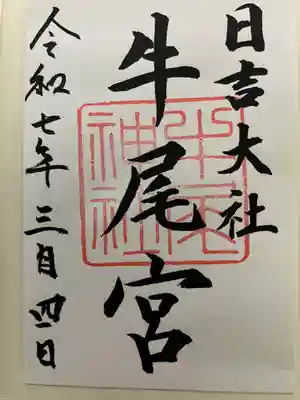 日吉大社
牛尾宮
牛尾神社
令和七年三月四日